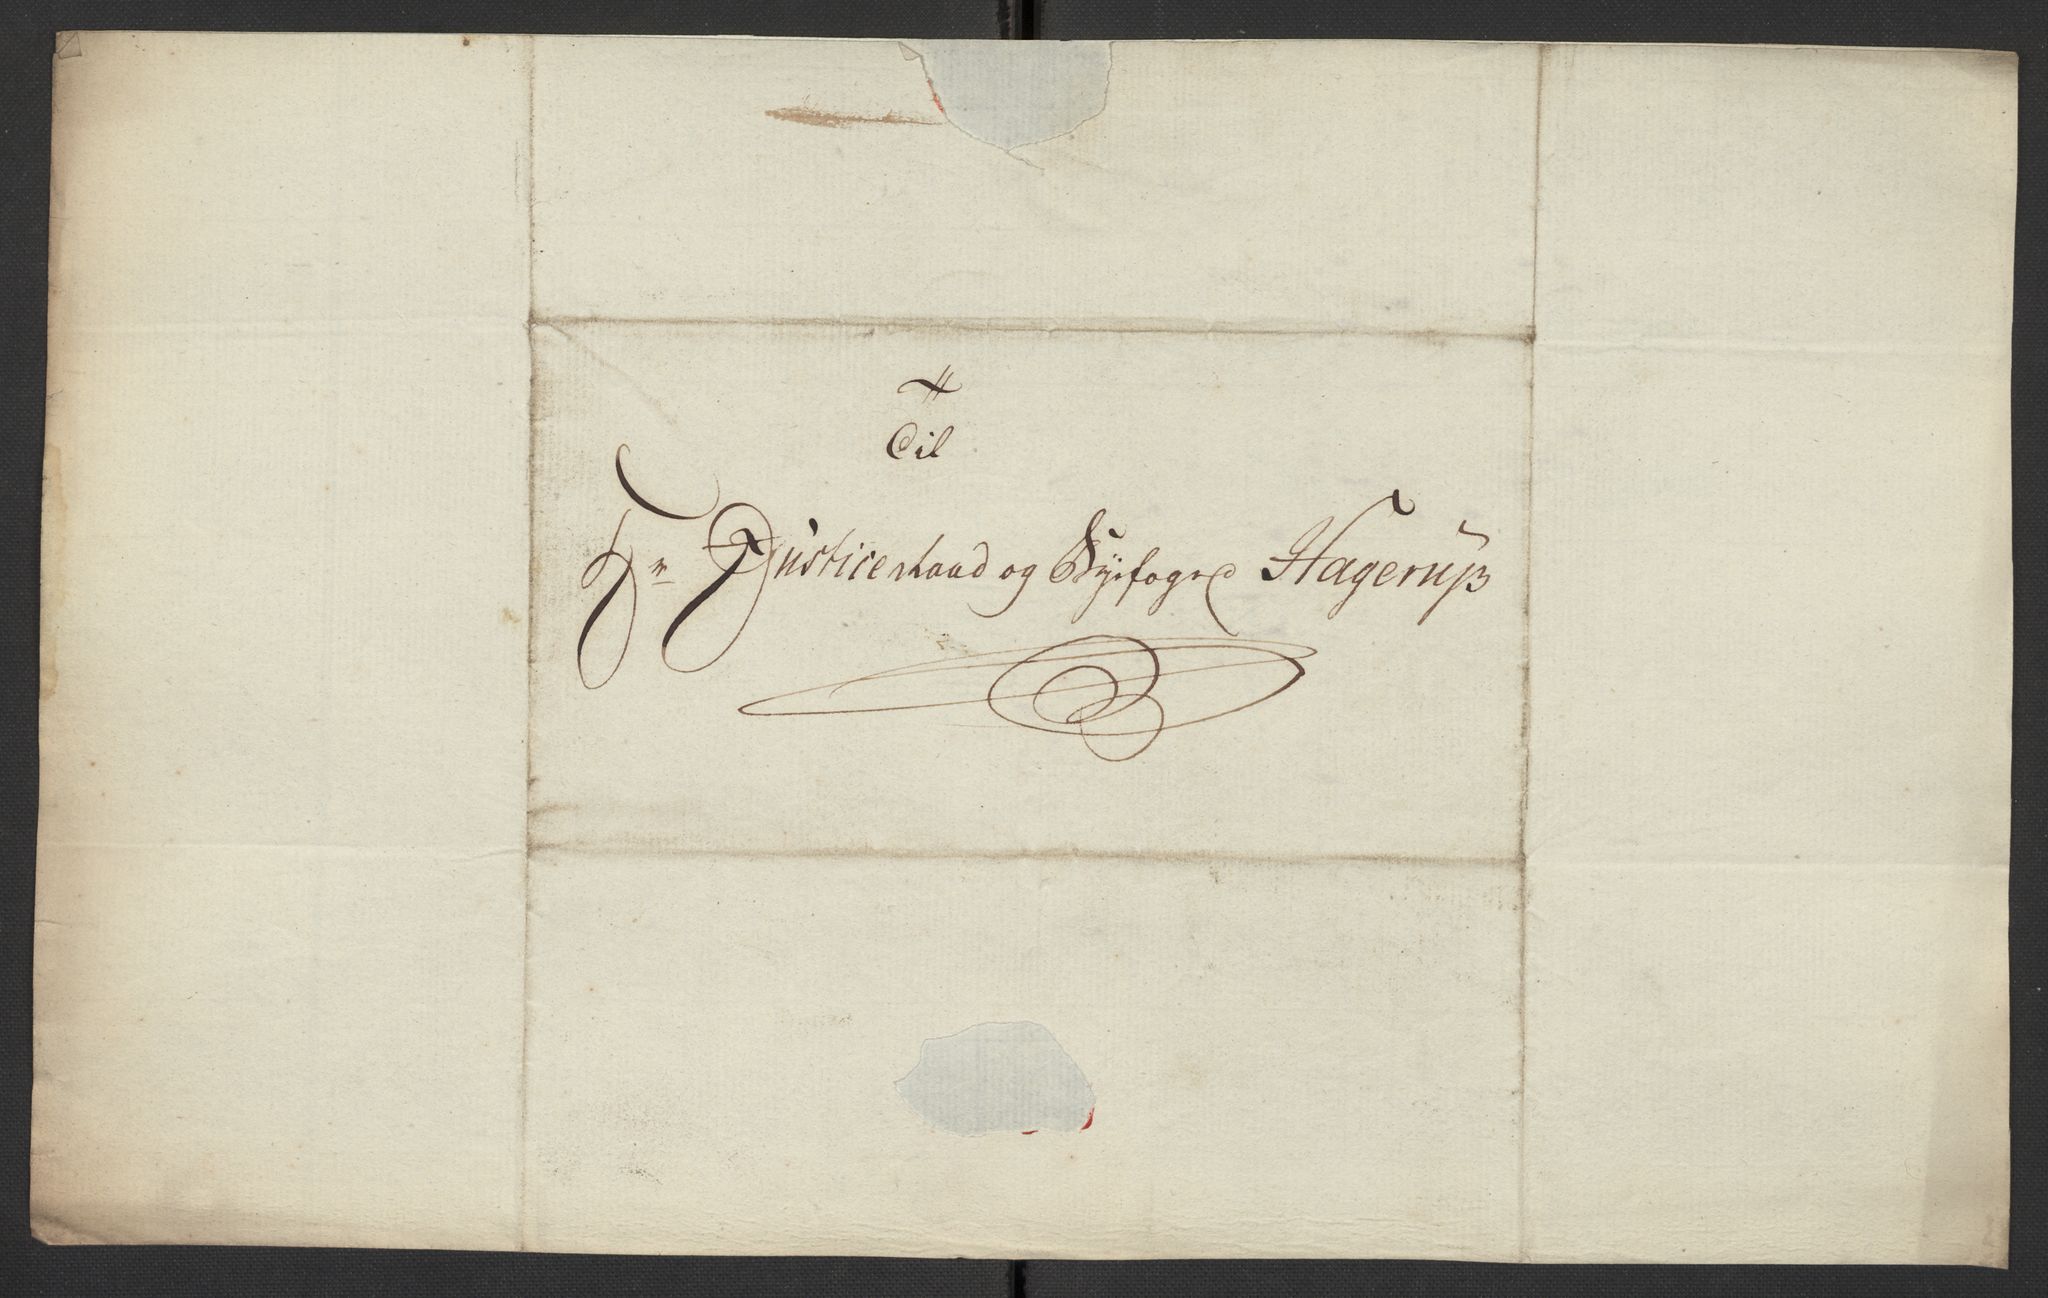 Til
Hr Justiceraad og Byefoged Hagerup